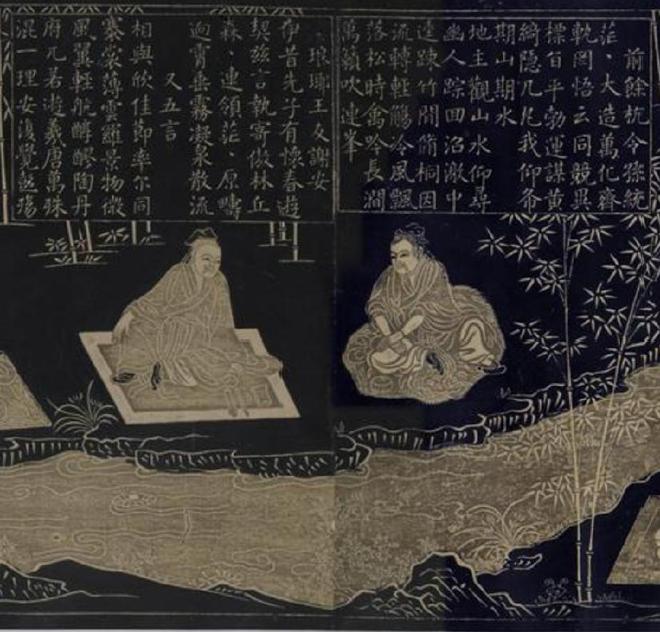 前餘杭令孫統
茫、大造萬化齊
軌罔悟云同競異
標百平勃運謀黃
綺隱几凡我仰希
期山期水
地主觀山水仰尋
幽人踪回沼激中
逵踈竹間脩桐因
流轉輕觴冷風飄
落松時禽吟長澗
萬籟吹連峯
琅瑘王友謝安
伊昔先子有懷春遊
契兹言執寄傲林丘
森、連領茫、原疇
逈霄垂霧凝泉散流
又五言
相與欣佳節率尒同
褰裳薄雲羅景物微
風翼輕航醇醪陶丹
府兀若遊羲唐萬殊
混一理安復覺彭殤